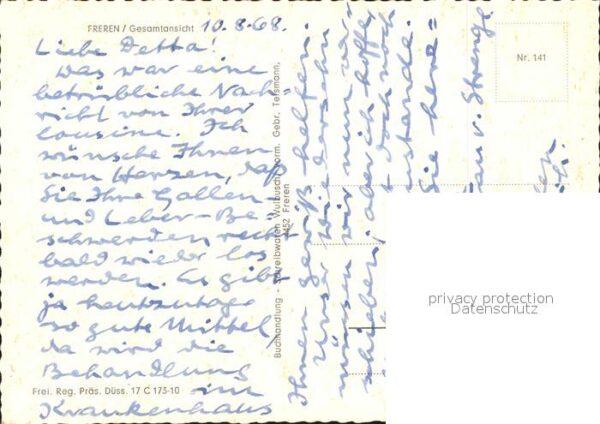 FREREN / Gesamtansicht 10.8.68.
Liebe Detta!
Das war eine
betrübliche Nach-
richt von Ihrer
Cousine. Ich
wünsche Ihnen
von Herzen, daß
Sie Ihre Gallen-
und Leber-Be-
schwerden recht
bald wieder los
werden. Es gibt
ja heutzutage
so gute Mittel,
da wird die
Behandlung
im
Krankenhaus
Frei. Reg. Präs. Düss. 17 C 173-10
Buchhandlung - Schreibwaren vorm. Gebr. Tersmann,
4452 Freren
Ihnen gewiß helfen.
Unser Wiedersehn
müssen wir nun ver-
schieben, aber ich hoffe,
doch noch
zustande.
Sie herz-
v. Strenge
Nr. 141
privacy protection
Datenschutz